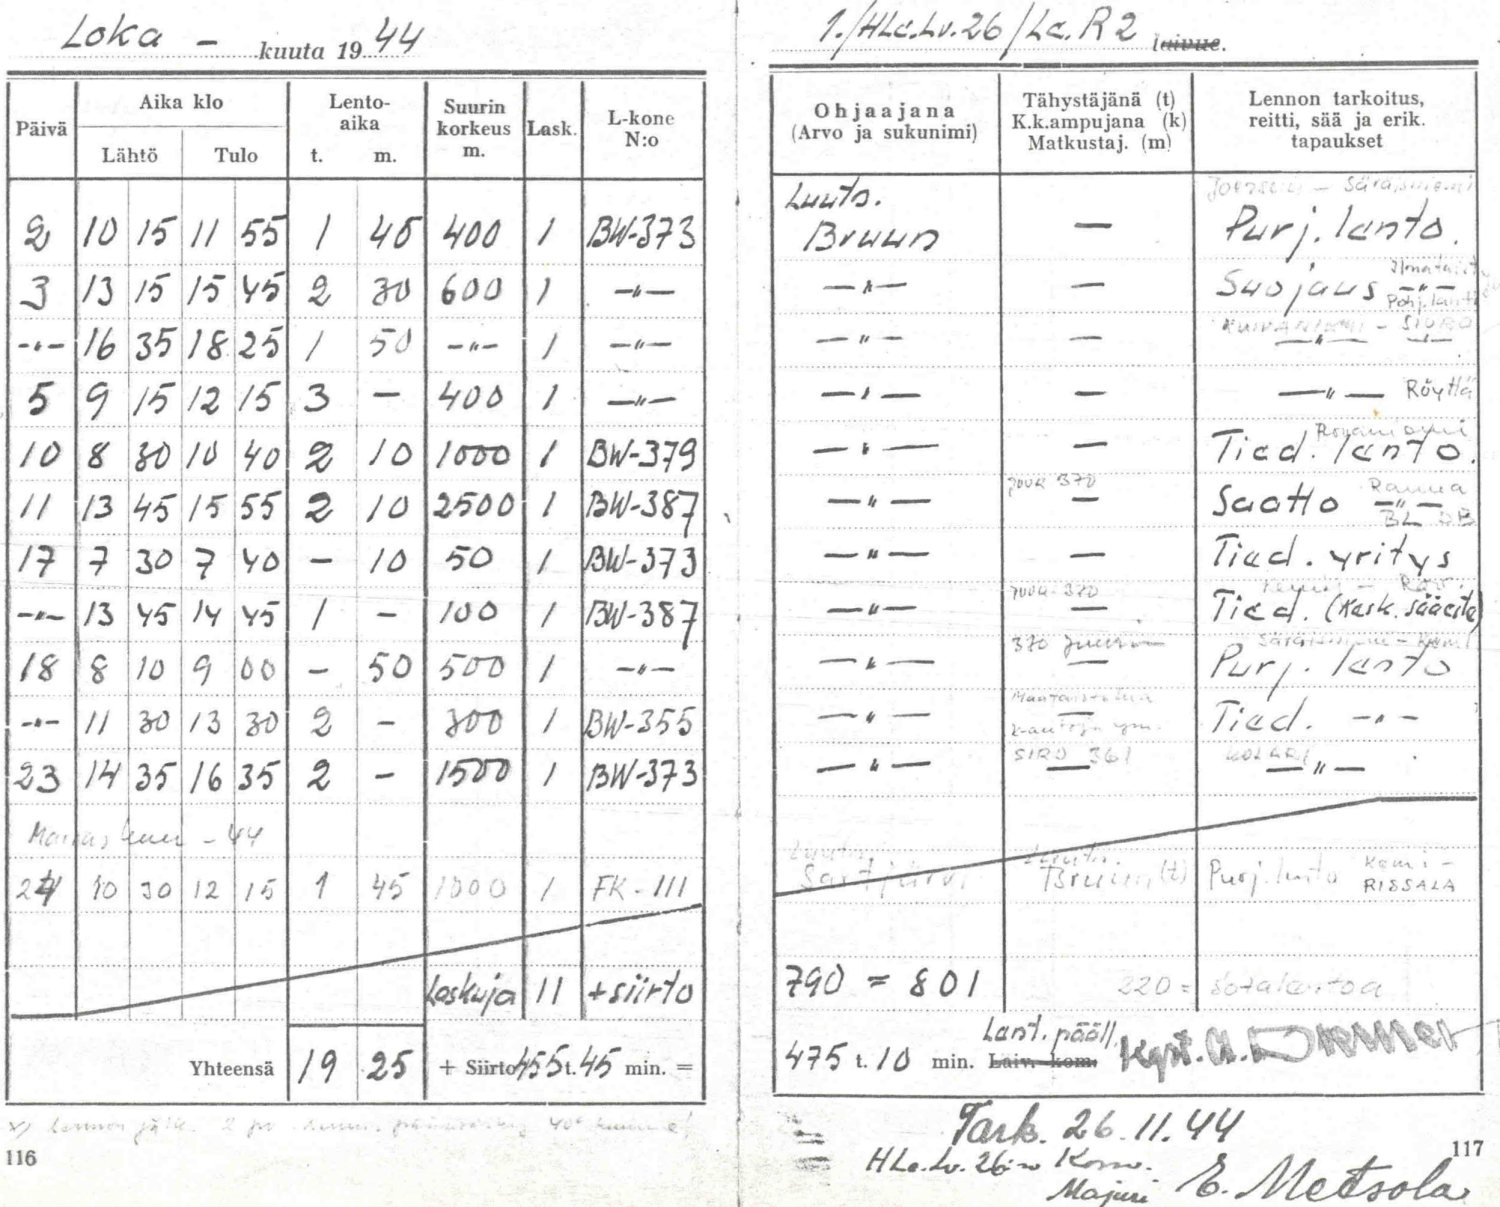 Loka - kuuta 1944
Päivä Aika klo Lähtö Tulo Lento-aika t. m. Suurin korkeus m. Lask. L-kone N:o
2 10 15 11 55 1 40 400 1 BW-373
3 13 15 15 45 2 30 600 1 -"-
-"- 16 35 18 25 1 50 -"- 1 -"-
5 9 15 12 15 3 - 400 1 -"-
10 8 30 10 40 2 10 1000 1 BW-379
11 13 45 15 55 2 10 2500 1 BW-387
17 7 30 7 40 - 10 50 1 BW-373
-"- 13 45 14 45 1 - 100 1 BW-387
18 8 10 9 00 - 50 500 1 -"-
-"- 11 30 13 30 2 - 300 1 BW-355
23 14 35 16 35 2 - 1500 1 BW-373
Marraskuu - 44
24 10 30 12 15 1 45 1000 1 FK-111
Laskuja 11 + siirto
Yhteensä 19 25 + Siirto 455 t. 45 min. =
116
1./HLe.Lv.26/Le.R2 laivue.
Ohjaajana (Arvo ja sukunimi) Tähystäjänä (t) K.k.ampujana (k) Matkustaj. (m) Lennon tarkoitus, reitti, sää ja erik. tapaukset
Luutn.
Bruun - Purj. lento.
-"- - Suojaus -"-
KUIVANIEMI - SIURO
-"- - -"- -"-
-"- - -"- Röyttä
Rovaniemi
-"- - Tied. lento.
-"- - Saatto -"-
-"- - Tied. yritys
-"- - Tied. (Kesk. säästä)
-"- - Purj. lento
-"- - Tied. -"-
SIRO 361 KOLARI
-"- - -"-
Luutn. Luutn.
Sartjärvi Bruun (t) Purj. lento Kemi - RISSALA
790 = 801 220 = sotalentoa
475 t. 10 min. Laiv. kom. Lent. pääll.
Tark. 26.11.44
HLe.Lv. 26:n Kom.
Majuri E. Metsola
117